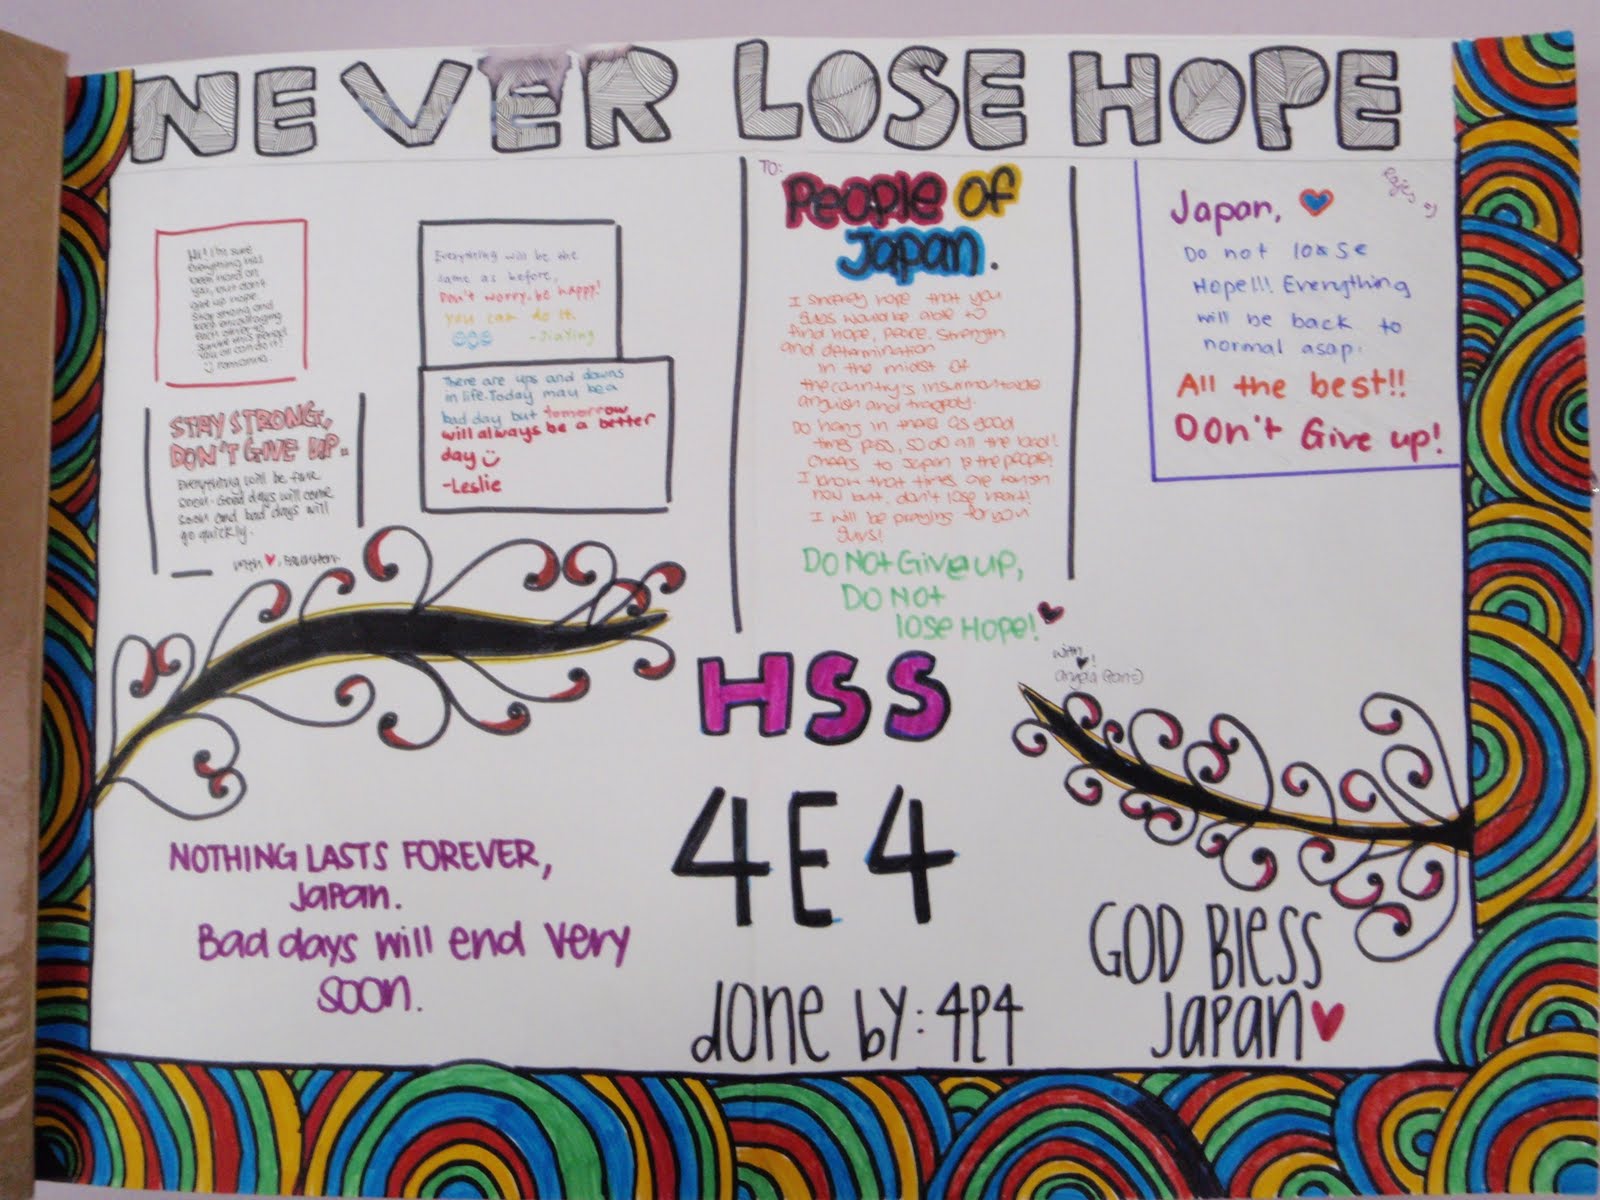 NEVER LOSE HOPE
Hi! I'm sure
everything has
been hard on
you, but don't
give up hope.
Stay strong and
keep encouraging
each other to
survive this period!
You all can do it!
STAY STRONG,
DON'T GIVE UP..
Everything will be fine
soon. Good days will come
soon and bad days will
go quickly.
with ♥,
Everything will be the
same as before,
Don't worry. be happy!
you can do it.
- JiaYing
There are ups and downs
in life. Today may be a
bad day but tomorrow
will always be a better
day
-Leslie
TO:
People of
Japan.
I sincerely hope that you
guys would be able to
find hope, peace, strength
and determination
in the midst of
the country's insurmontable
anguish and tragedy.
Do hang in there as good
times pass, so do all the bad!
Cheers to Japan & the people!
I know that times are
now but, don't lose heart!
I will be praying for you
guys!
DO NOT Give up,
DO NOT
lose Hope!
with ♥!
Japan,
Do not loose
Hope!!! Everything
will be back to
normal asap.
All the best!!
Don't Give up!
HSS
4E4
NOTHING LASTS FOREVER,
Japan.
Bad days will end very
soon.
done by: 4P4
GOD Bless
Japan♥